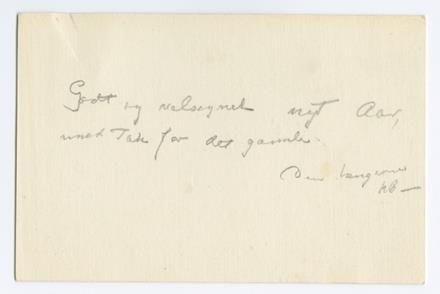 Godt og velsegnet nyt Aar,
med Tak for det gamle.
Din hengivne
HB—